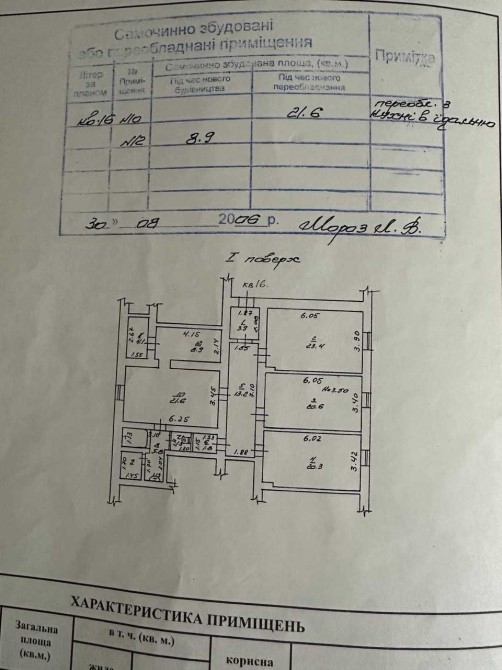 Самочинно збудовані
або переобладнані приміщення
Примітка
Літер за планом
№ Примі-щення
Самочинно збудована площа, (кв.м.)
Під час нового будівництва
Під час нового переобладнання
кв.16 №10 21.6 переобл. з кухні в їдальню
№12 8.9
30 » 09 2006 р. Мороз Л. В.
I поверх
кв 16.
1.87
6.05
2.62
4.15
3.9
2
23.4
3.90
8.9
2.14
1.55
1.55
6.05
H=2.50
10
21.6
3.45
13.2
7.10
3
20.6
3.40
6.25
6.02
1.33
1.80
1.88
4
20.3
3.42
1.45
ХАРАКТЕРИСТИКА ПРИМІЩЕНЬ
Загальна площа (кв.м.)
в т. ч. (кв. м.)
корисна